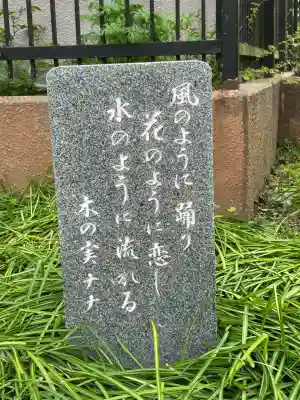 風のように踊り
花のように恋し
水のように流れる
木の実ナナ